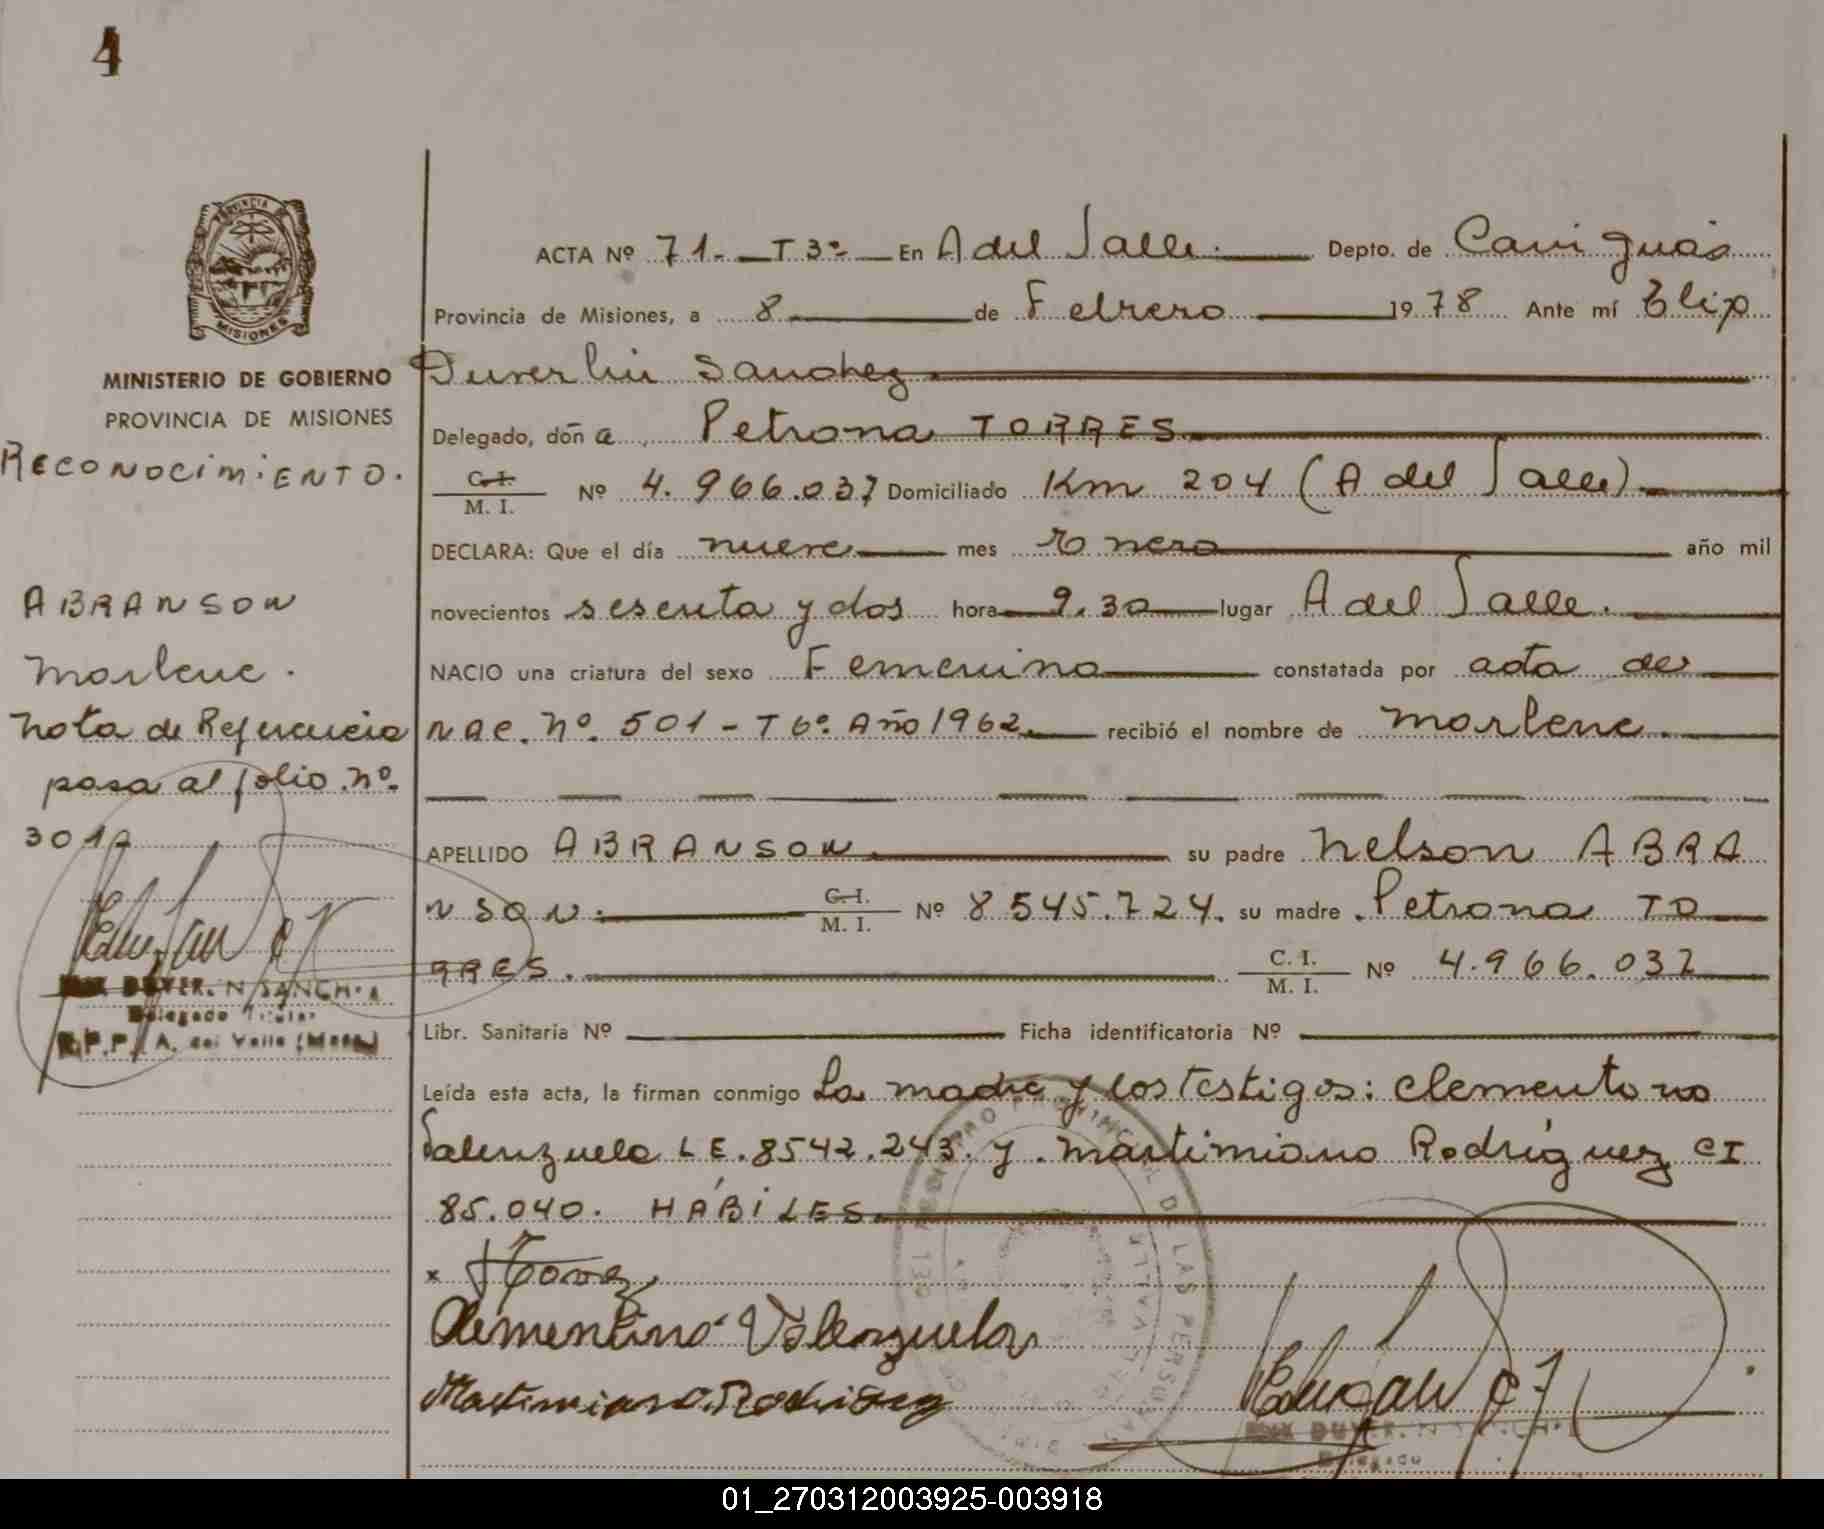 4
PROVINCIA DE
MISIONES
MINISTERIO DE GOBIERNO
PROVINCIA DE MISIONES
RECONOCIMIENTO.
ABRANSON
Marlene.
Nota de Referencia
pasa al folio Nº.
301
N SANCH
Delegado Titular
R.P.P. A. del Valle (Mnes)
ACTA Nº 71 - T 3º - En A del Valle. Depto. de Cainguás
Provincia de Misiones, a 8 de Febrero 1978 Ante mí Elix
Duverlin Sanchez
Delegado, doña Petrona TORRES
C.I. / M. I. Nº 4.966.037 Domiciliado Km 204 (A del Valle)
DECLARA: Que el día nueve mes Enero año mil
novecientos sesenta y dos hora 9.30 lugar A del Valle.
NACIO una criatura del sexo Femenino constatada por acta de
NAC. Nº. 501 - T 6º. Año 1962 recibió el nombre de Marlene.
APELLIDO ABRANSON su padre Nelson ABRA
NSON. C.I. / M. I. Nº 8545.724. su madre Petrona TO
RRES. C. I. / M. I. Nº 4.966.037
Libr. Sanitaria Nº Ficha identificatoria Nº
Leída esta acta, la firman conmigo La madre y los testigos: Clementino
Valenzuela LE. 8542.243. y Martimiano Rodríguez CI
85.040. HÁBILES
x
Clementino Valenzuela
Martimiano Rodriguez
DUVER. N
Delegado
01_270312003925-003918